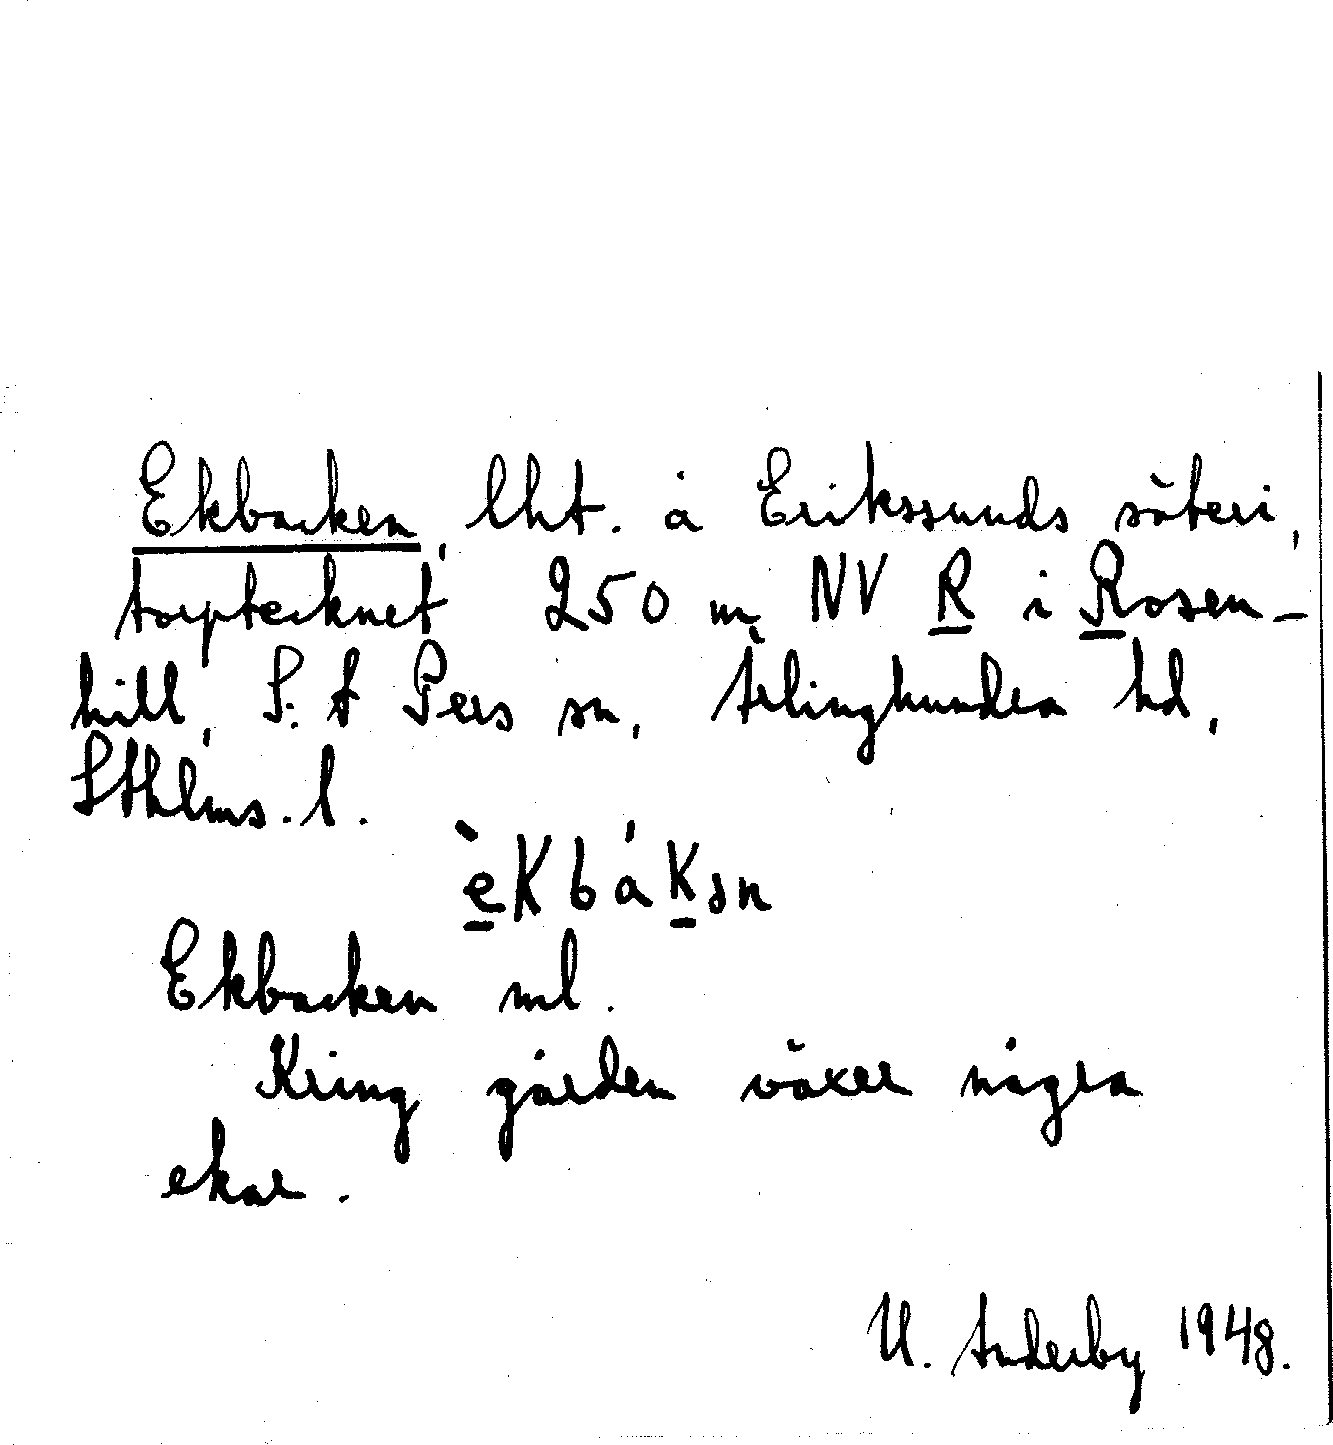 Ekbacken, lht. å Erikssunds säteri,
torptecknet 250 m NV R i Rosen-
hill, S:t Pers sn, Ärlinghundra hd,
Sthlms. l.
èKbáKən
Ekbacken ml.
Kring gården växer några
ekar.
U. Anderby 1948.